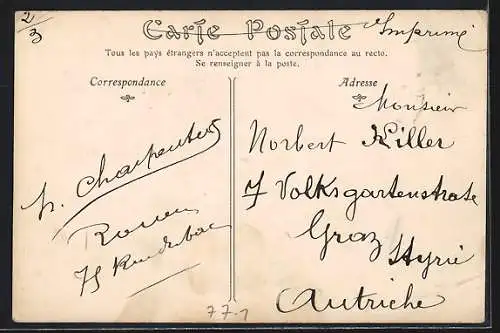 2/3
Carte Postale
Imprimé
Tous les pays étrangers n'acceptent pas la correspondance au recto.
Se renseigner à la poste.
Correspondance
h. Charpentier
Rouen
75 Rue du bac
Adresse
Monsieur
Norbert Killer
7 Volksgartenstrate
Graz Styrie
Autriche
77-1